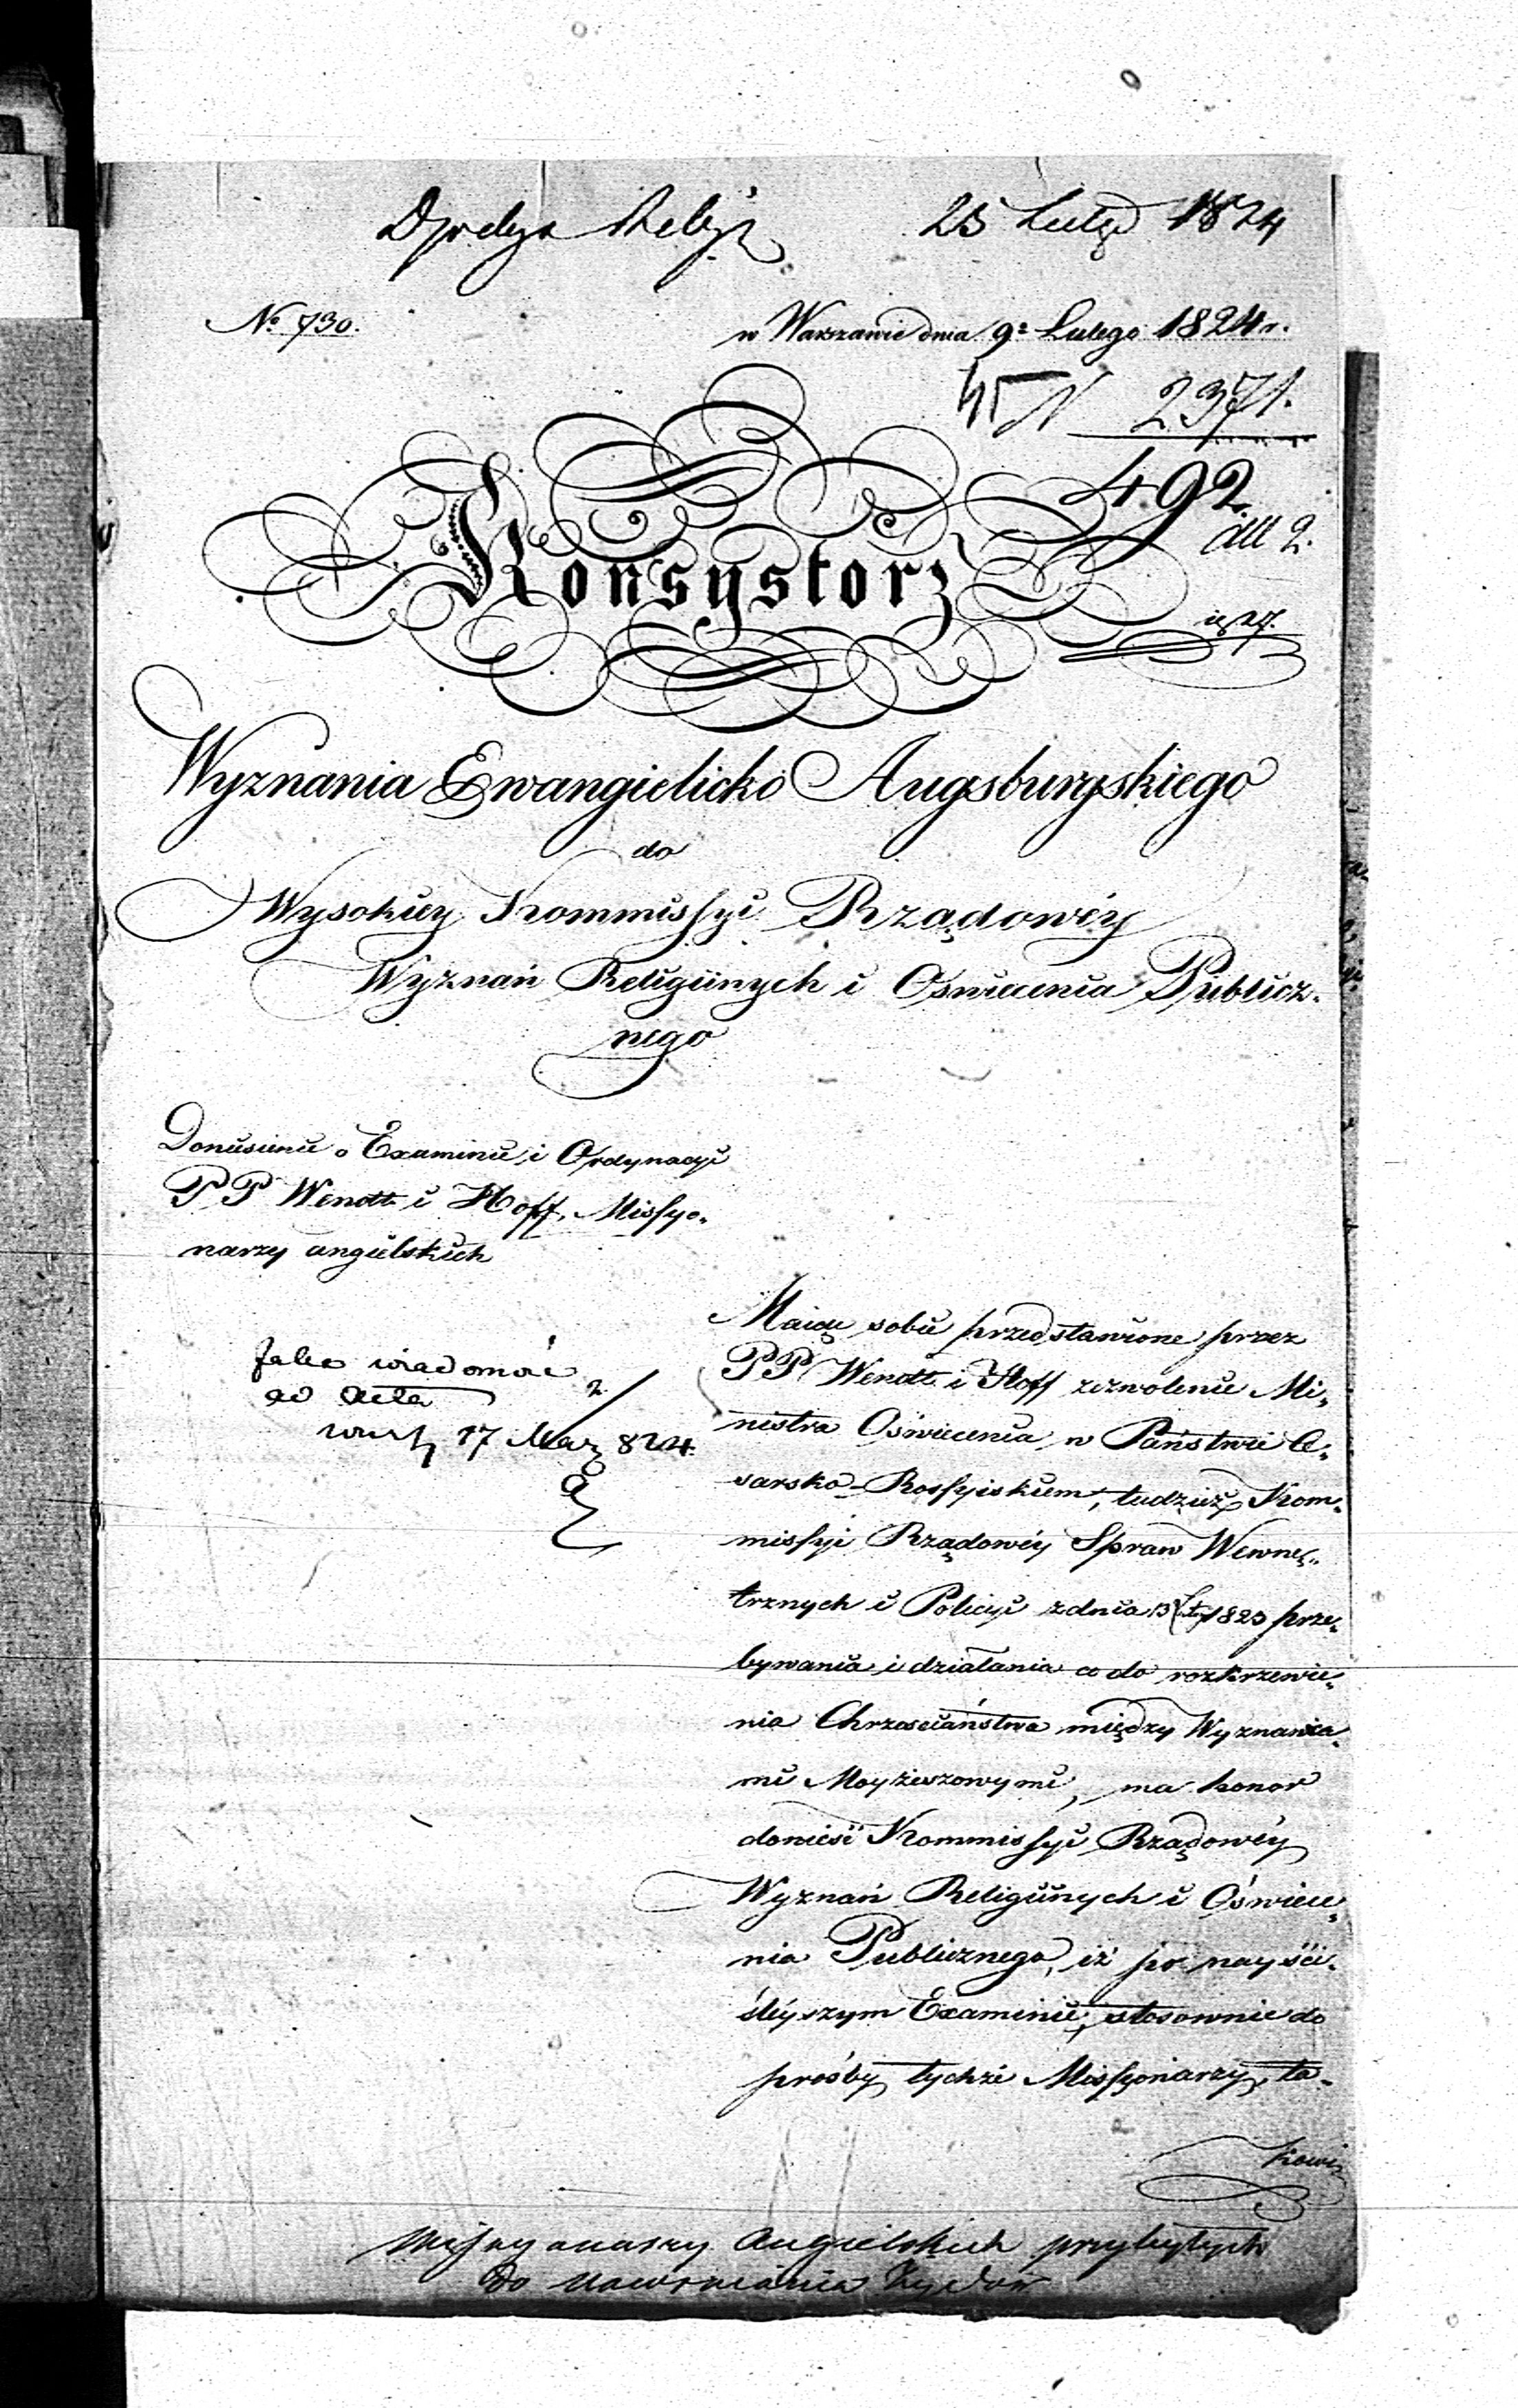 25 Lutego 1824
No 730.
w Warszawie dnia 9º Lutego 1824 r.
N 2371.
492.
Konsystorz
Wyznania Ewangielicko Augsburgskiego
do
Wysokiey Kommissyi Rządowéy
Wyznań Religiinych i Oświecenia Publicz-
nego
Doniesienie o Examinie i Ordynacyi
PP Wendt i Hoff, Missyo-
narzy angielskich
Maiąc sobie przedstawione przez
PP Wendt i Hoff zezwolenie Mi-
nistra Oświecenia w Państwie Ce-
sarsko-Rossyiskiem, tudzież Kom-
missyi Rządowéy Spraw Wewnę-
trznych i Policyi z dnia 13 1823 prze-
bywania i działania co do rozkrzewie-
nia Chrześciaństwa między Wyznania-
mi Moyżeszowymi, ma honor
donieść Kommissyi Rządowéy
Wyznań Religiinych i Oświece-
nia Publicznego, iż po nayści-
śléyszym Examinie, stosownie do
prośby tychże Missyonarzy, ta-
kowi
Jako wiadomość
ad acta
17 Mar 824.
Missyonarzy Angielskich przybyłych
do nawracania Żydów